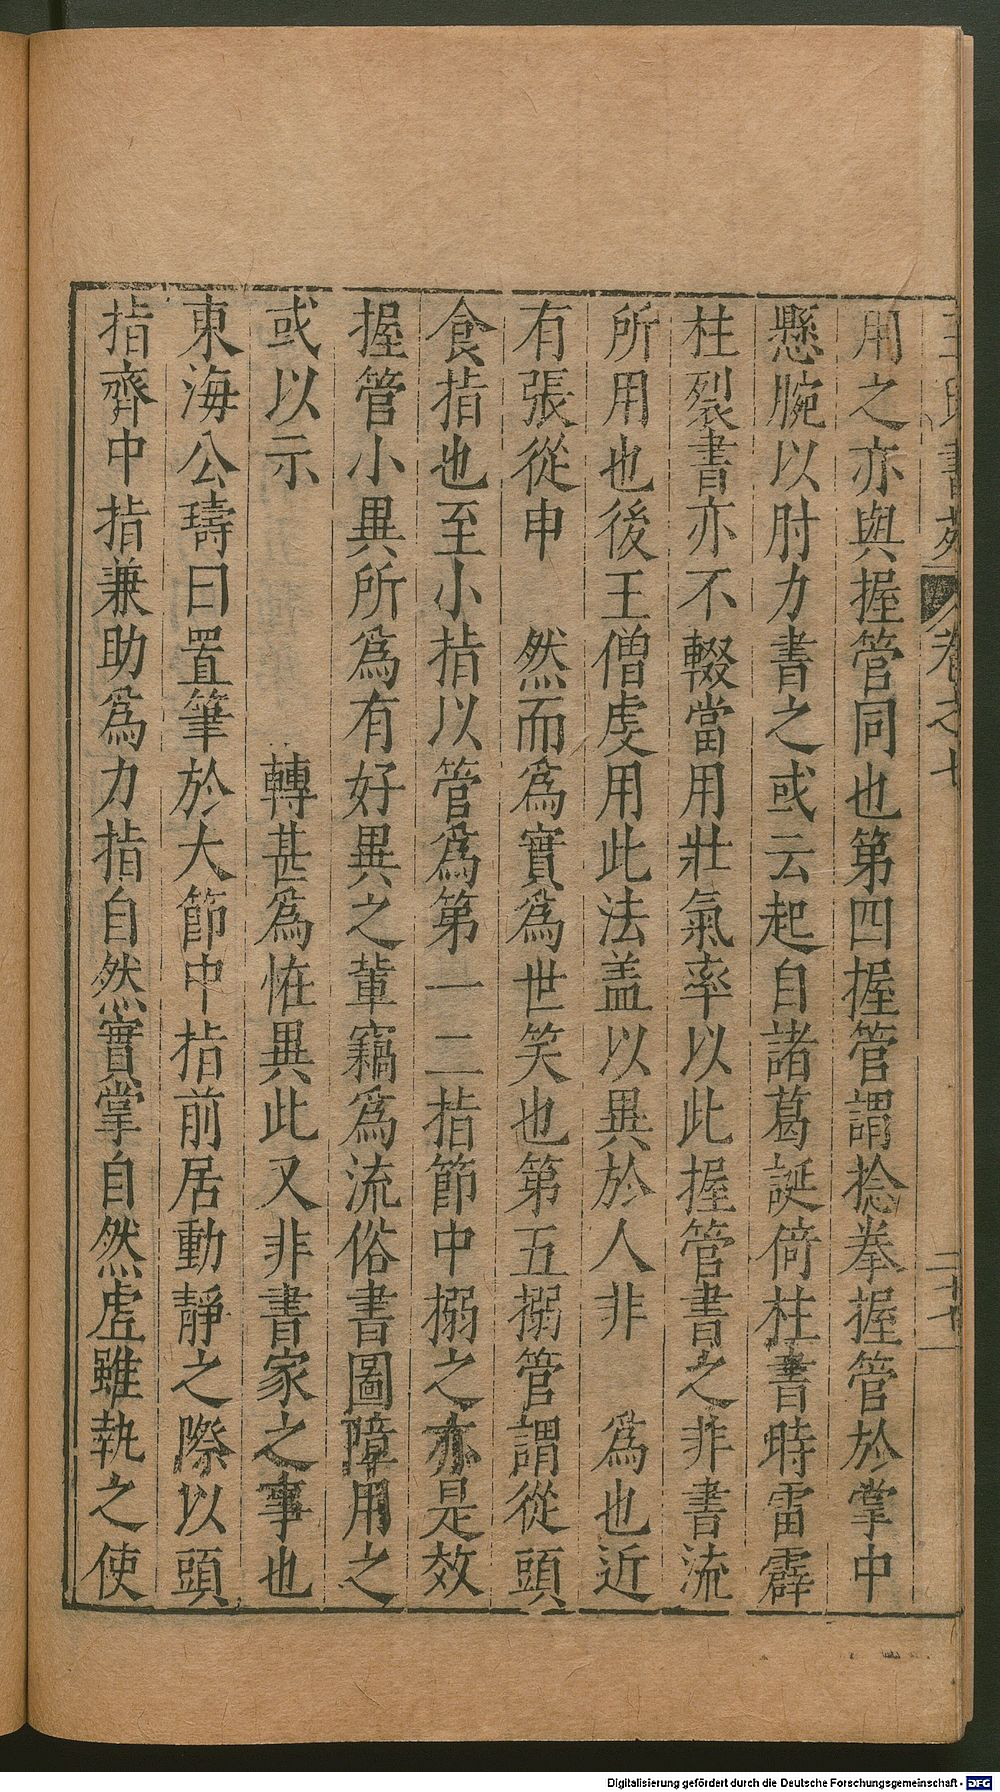 王氏書苑 卷之七 二十七
用之亦與握管同也第四握管謂捻拳握管於掌中
懸腕以肘力書之或云起自諸葛誕倚柱書時雷霹
柱裂書亦不輟當用壯氣率以此握管書之非書流
所用也後王僧虔用此法盖以異於人非 為也近
有張從申 然而為實為世笑也第五搦管謂從頭
食指也至小指以管為第一二指節中搦之亦是效
握管小異所為有好異之輩竊為流俗書圖障用之
或以示 轉甚為恠異此又非書家之事也
東海公璹曰置筆於大節中指前居動靜之際以頭
指齊中指兼助為力指自然實掌自然虛雖執之使
Digitalisierung gefördert durch die Deutsche Forschungsgemeinschaft - DFG